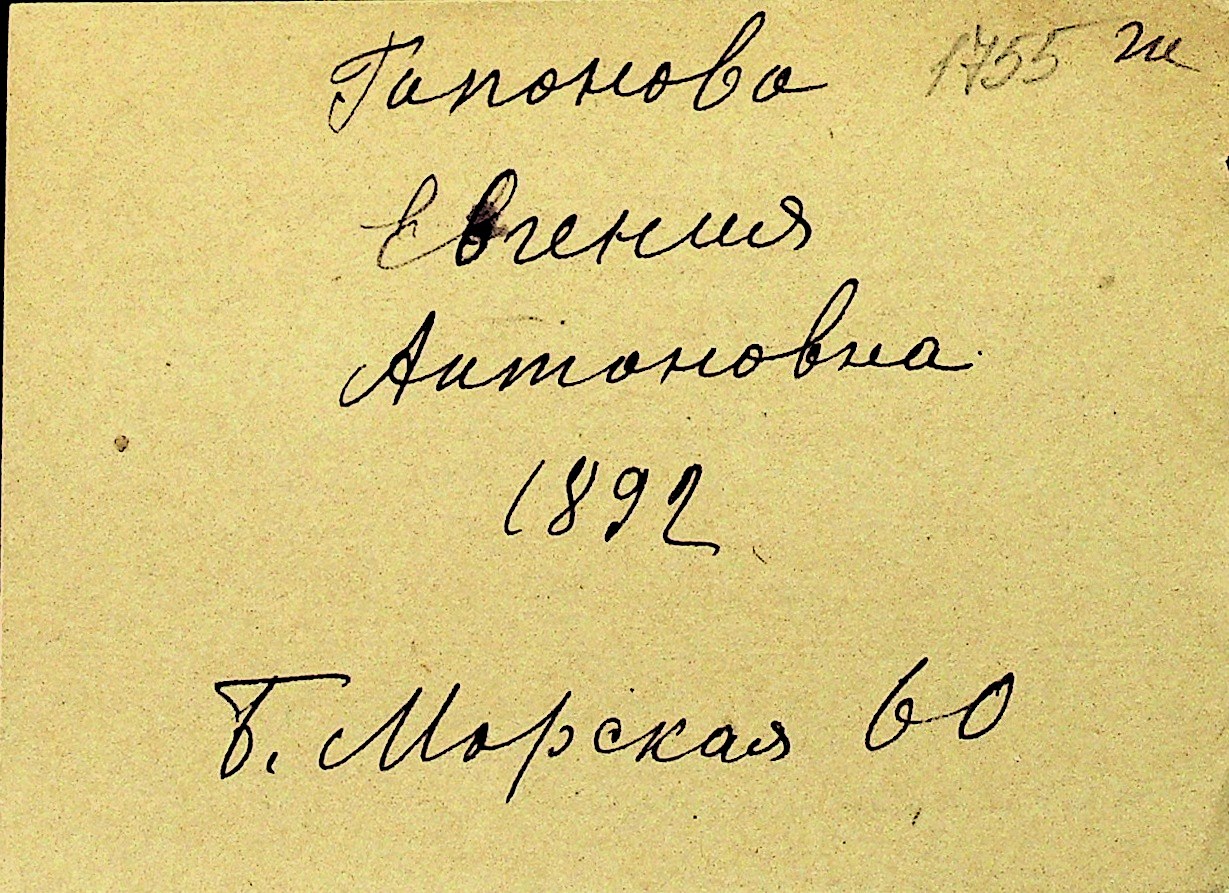 Гапонова 1755 ж
Евгения
Антоновна
1892
Б. Морская 60